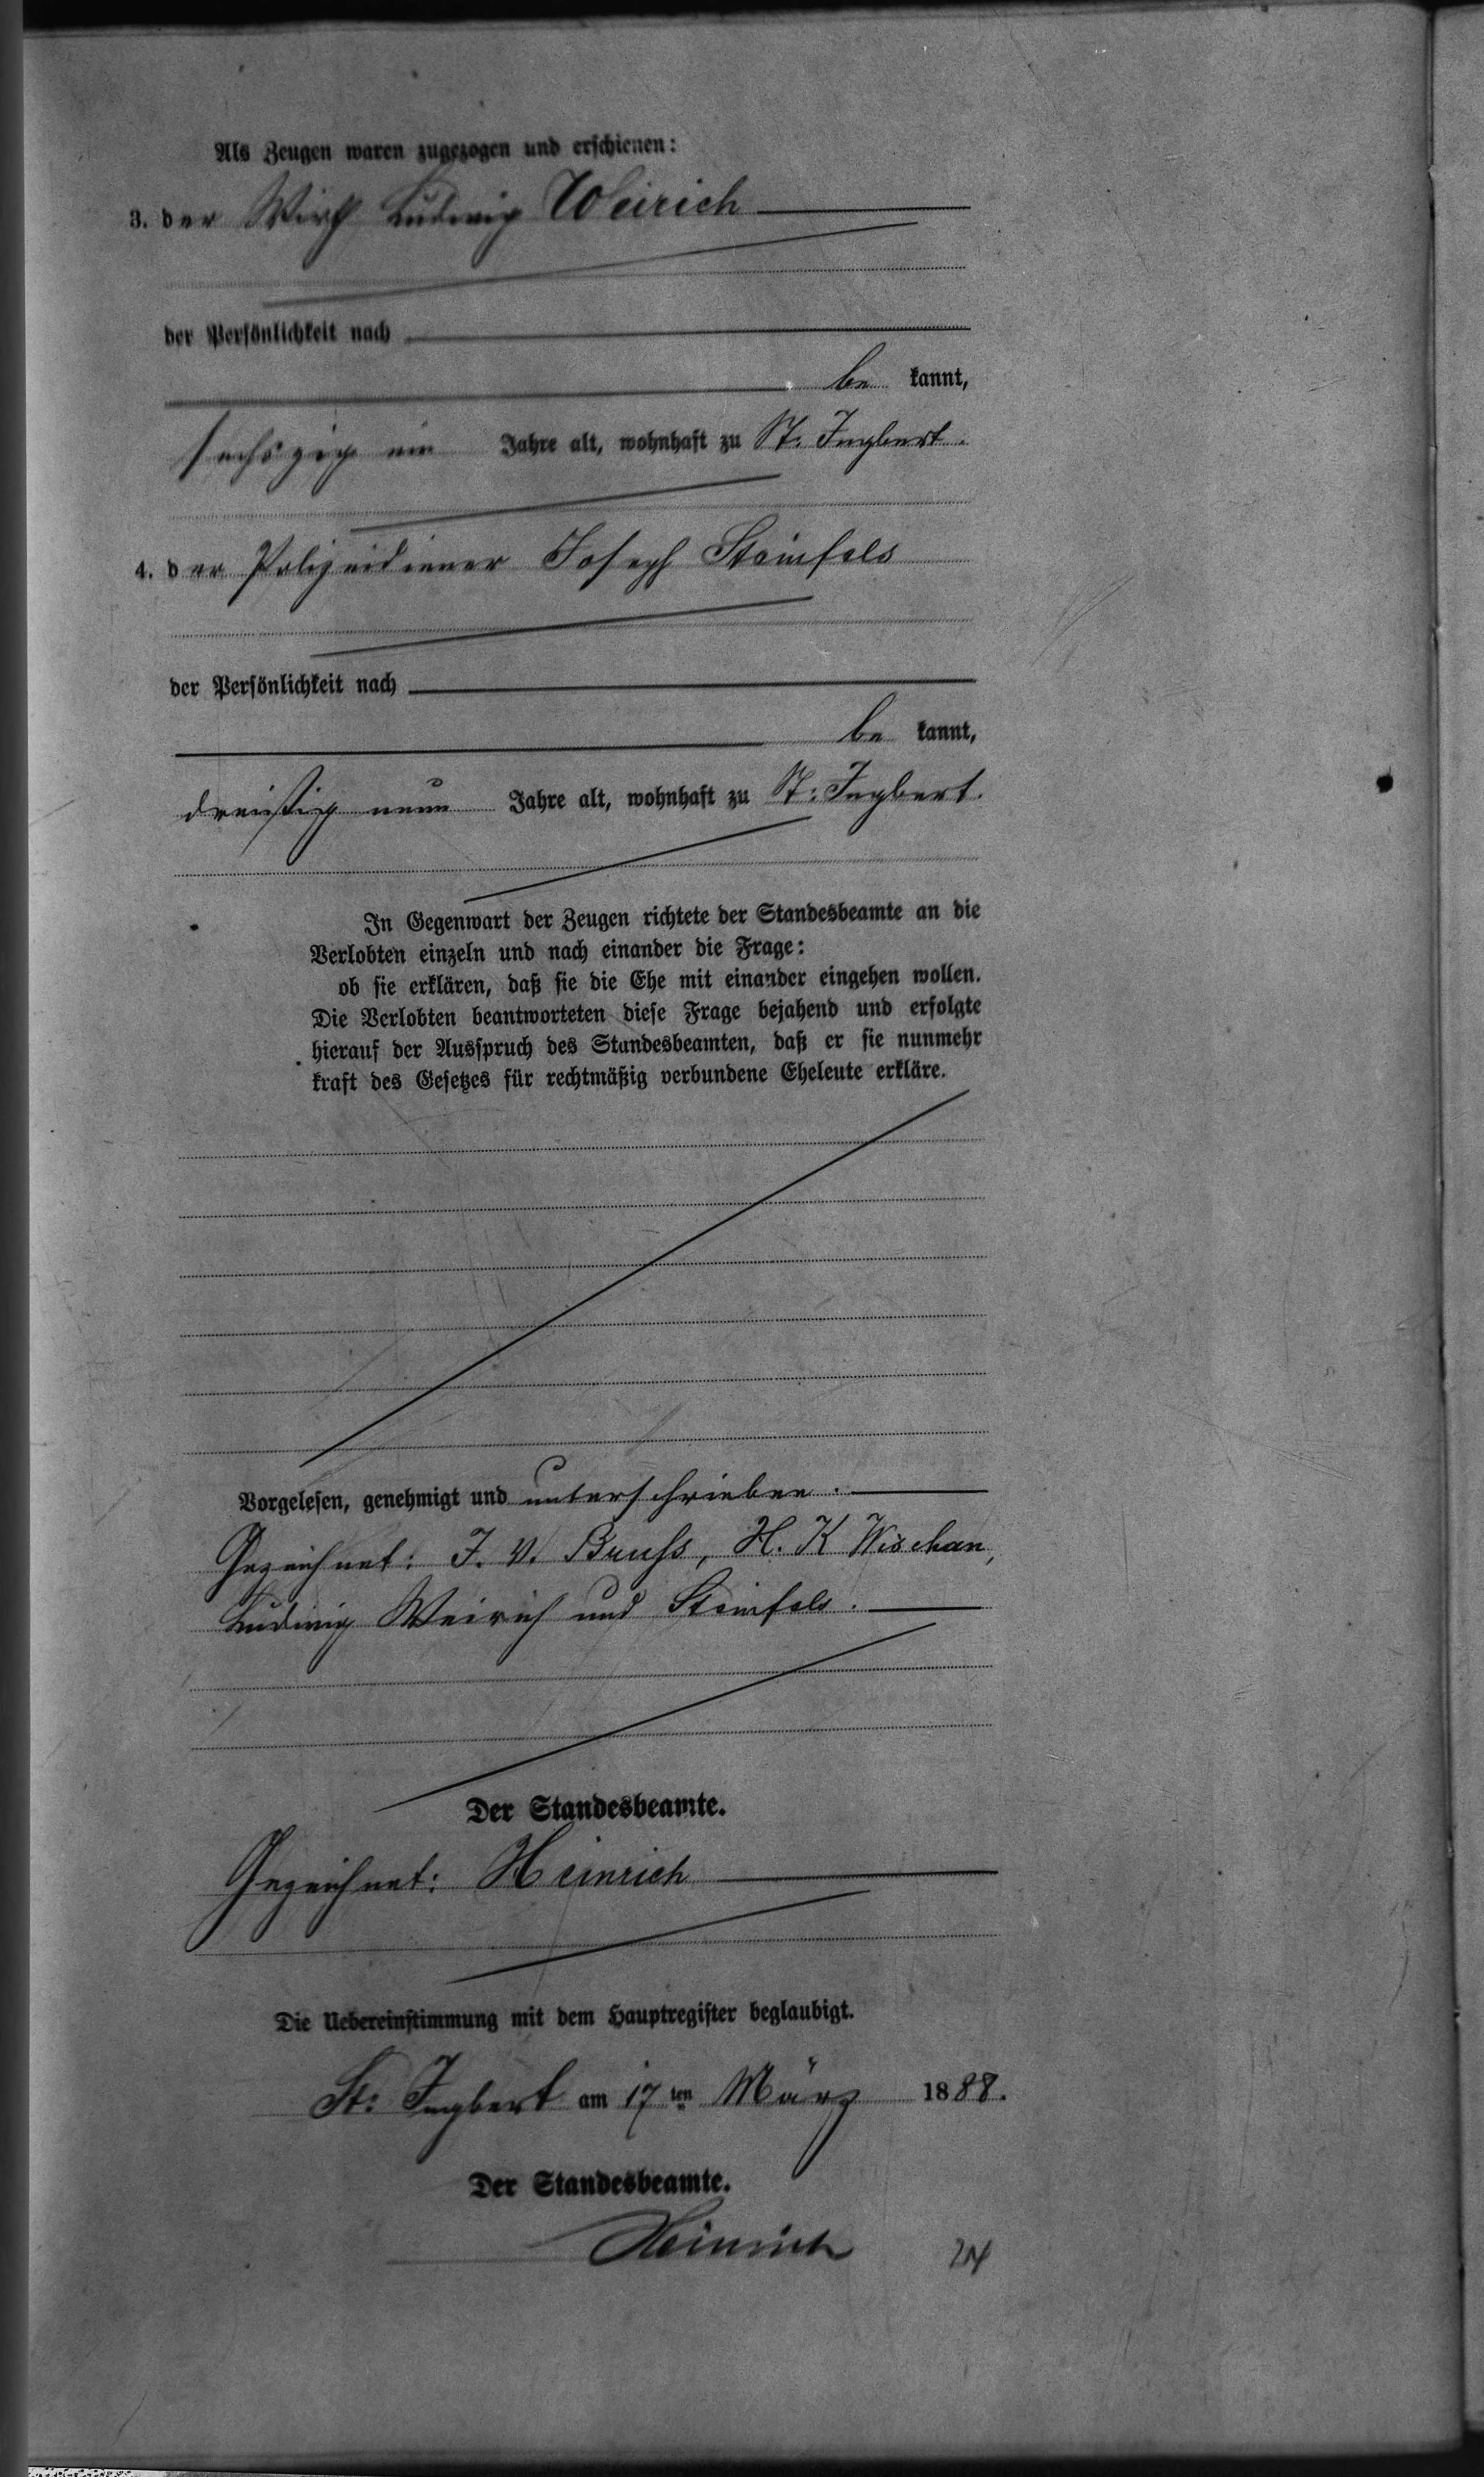 Als Zeugen waren zugezogen und erschienen:
3. der Wirth Ludwig Weirich
der Persönlichkeit nach
be kannt,
sechszig ein Jahre alt, wohnhaft zu St. Ingbert.
4. der Polizeidiener Joseph Steinfels
der Persönlichkeit nach
be kannt,
dreißig neun Jahre alt, wohnhaft zu St. Ingbert.
In Gegenwart der Zeugen richtete der Standesbeamte an die
Verlobten einzeln und nach einander die Frage:
ob sie erklären, daß sie die Ehe mit einander eingehen wollen.
Die Verlobten beantworteten diese Frage bejahend und erfolgte
hierauf der Ausspruch des Standesbeamten, daß er sie nunmehr
kraft des Gesetzes für rechtmäßig verbundene Eheleute erkläre.
Vorgelesen, genehmigt und unterschrieben.
Gezeichnet: J. V. H. K
Ludwig Weirich und Steinfels.
Der Standesbeamte.
Gezeichnet: Heinrich
Die Uebereinstimmung mit dem Hauptregister beglaubigt.
St. Ingbert am 17ten März 1888.
Der Standesbeamte.
Heinrich